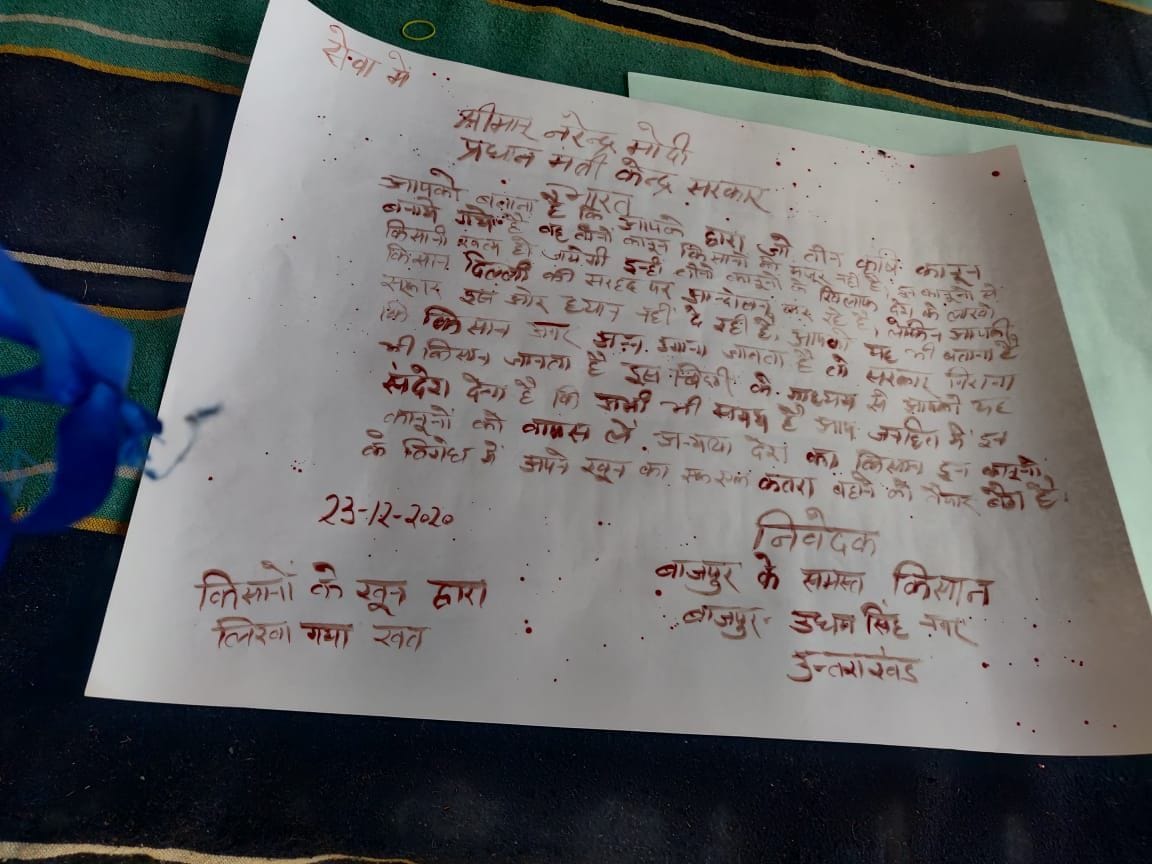 सेवा में
श्रीमान नरेन्द्र मोदी
प्रधान मंत्री केन्द्र सरकार
भारत
आपको बताना है कि आपके द्वारा जो तीन कृषि कानून
बनाये गये है वह तीनो कानून किसानो को मंजूर नही है इन कानूनो से
किसानी खत्म हो जायेगी इन्ही तीनो कानूनो के खिलाफ देश के लाखो
किसान दिल्ली की सरहद पर आन्दोलन कर रहे है, लेकिन आपकी
सरकार इस ओर ध्यान नही दे रही है, आपको यह भी बताना है
कि किसान अगर अन्न उगाना जानता है तो सरकार गिराना
भी किसान जानता है इस चिठ्ठी के माध्यम से आपको यह
संदेश देना है कि अभी भी समय है आप जनहित में इन
कानूनों को वापस लें अन्यथा देश का किसान इन कानूनो
के विरोध में अपने खून का एक एक कतरा बहाने को तैयार बैठा है।
23-12-2020
निवेदक
बाजपुर के समस्त किसान
बाजपुर- उधम सिंह नगर
उत्तराखंड
किसानों के खून द्वारा
लिखा गया खत